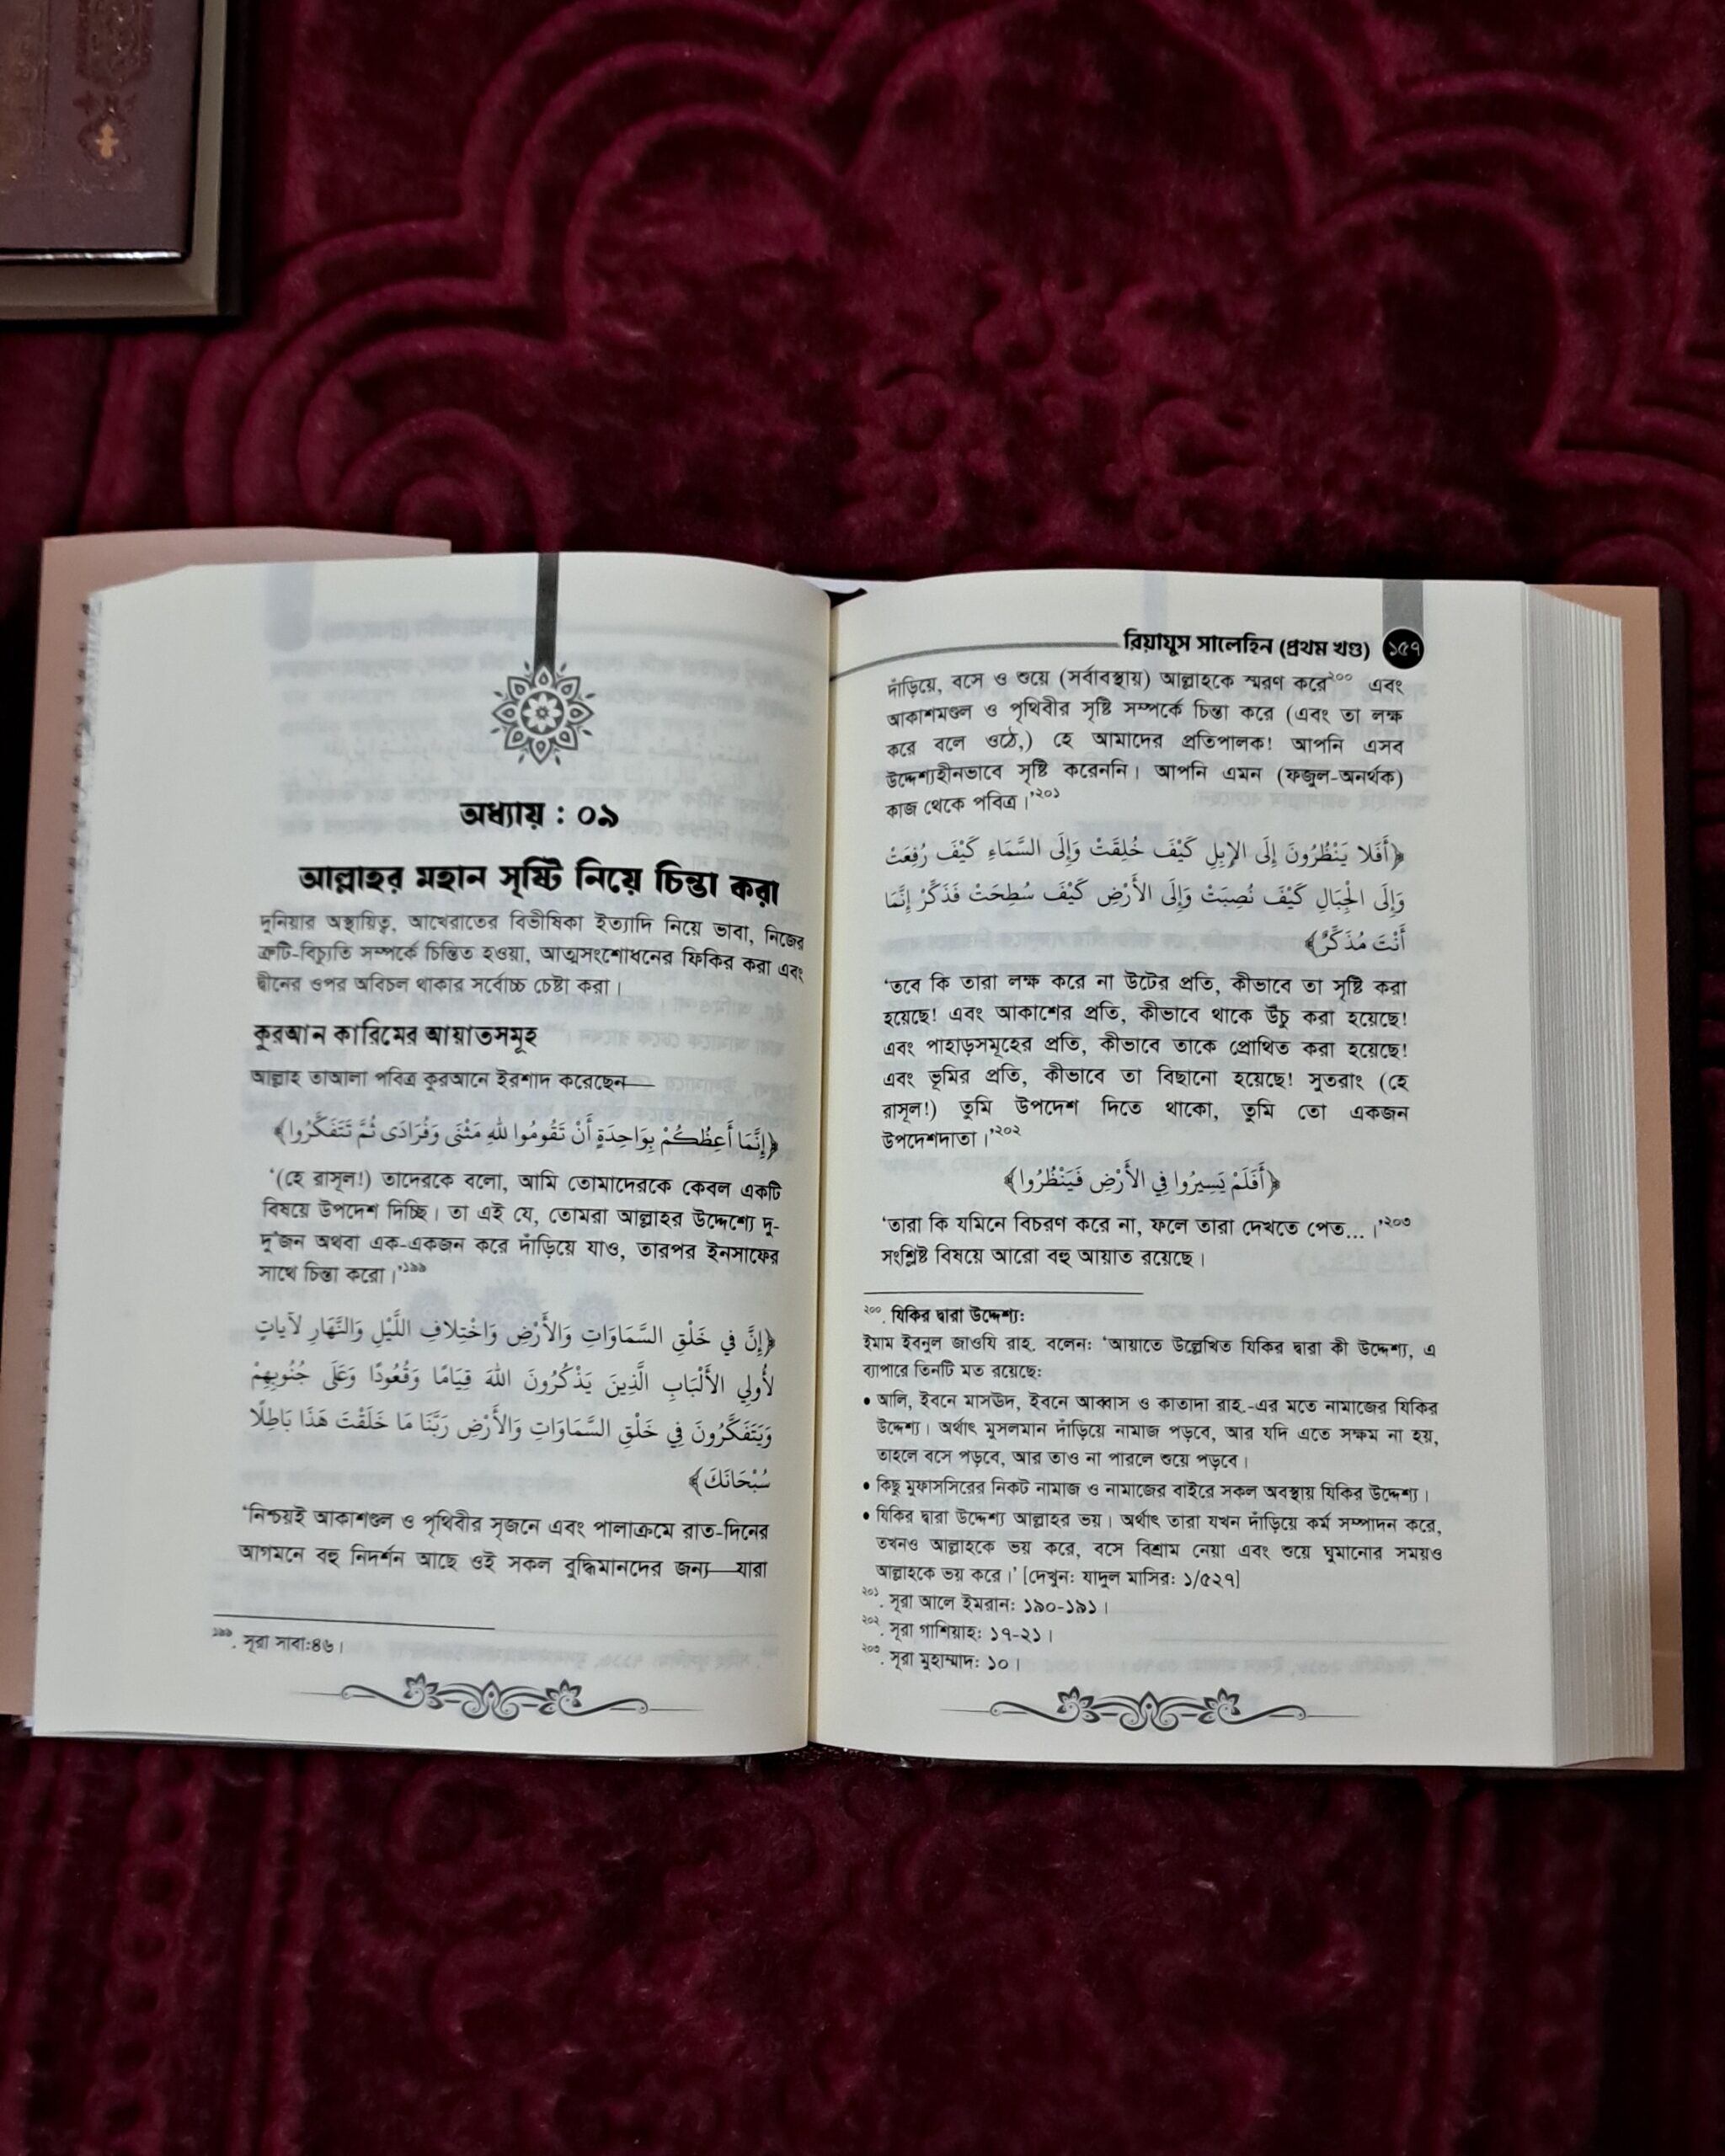 অধ্যায় : ০৯
আল্লাহর মহান সৃষ্টি নিয়ে চিন্তা করা
দুনিয়ার অস্থায়িত্ব, আখেরাতের বিভীষিকা ইত্যাদি নিয়ে ভাবা, নিজের
ত্রুটি-বিচ্যুতি সম্পর্কে চিন্তিত হওয়া, আত্মসংশোধনের ফিকির করা এবং
দ্বীনের ওপর অবিচল থাকার সর্বোচ্চ চেষ্টা করা।
কুরআন কারিমের আয়াতসমূহ
আল্লাহ তাআলা পবিত্র কুরআনে ইরশাদ করেছেন—
﴿إِنَّمَا أَعِظُكُمْ بِوَاحِدَةٍ أَنْ تَقُومُوا لِلهِ مَثْنَى وَفُرَادَى ثُمَّ تَتَفَكَّرُوا﴾
‘(হে রাসূল!) তাদেরকে বলো, আমি তোমাদেরকে কেবল একটি
বিষয়ে উপদেশ দিচ্ছি। তা এই যে, তোমরা আল্লাহর উদ্দেশ্যে দু-
দু’জন অথবা এক-একজন করে দাঁড়িয়ে যাও, তারপর ইনসাফের
সাথে চিন্তা করো।’১৯৯
﴿إِنَّ فِي خَلْقِ السَّمَاوَاتِ وَالأَرْضِ وَاخْتِلافِ اللَّيْلِ وَالنَّهَارِ لآيَاتٍ
لأُولِي الأَلْبَابِ الَّذِينَ يَذْكُرُونَ اللهَ قِيَامًا وَقُعُودًا وَعَلَى جُنُوبِهِمْ
وَيَتَفَكَّرُونَ فِي خَلْقِ السَّمَاوَاتِ وَالأَرْضِ رَبَّنَا مَا خَلَقْتَ هَذَا بَاطِلًا
سُبْحَانَكَ﴾
‘নিশ্চয়ই আকাশণ্ডল ও পৃথিবীর সৃজনে এবং পালাক্রমে রাত-দিনের
আগমনে বহু নিদর্শন আছে ওই সকল বুদ্ধিমানদের জন্য—যারা
১৯৯. সূরা সাবা:৪৬।
রিয়াযুস সালেহিন (প্রথম খণ্ড) ১৫৭
দাঁড়িয়ে, বসে ও শুয়ে (সর্বাবস্থায়) আল্লাহকে স্মরণ করে২০০ এবং
আকাশমণ্ডল ও পৃথিবীর সৃষ্টি সম্পর্কে চিন্তা করে (এবং তা লক্ষ
করে বলে ওঠে,) হে আমাদের প্রতিপালক! আপনি এসব
উদ্দেশ্যহীনভাবে সৃষ্টি করেননি। আপনি এমন (ফজুল-অনর্থক)
কাজ থেকে পবিত্র।’২০১
﴿أَفَلا يَنْظُرُونَ إِلَى الإِبِلِ كَيْفَ خُلِقَتْ وَإِلَى السَّمَاءِ كَيْفَ رُفِعَتْ
وَإِلَى الْجِبَالِ كَيْفَ نُصِبَتْ وَإِلَى الأَرْضِ كَيْفَ سُطِحَتْ فَذَكِّرْ إِنَّمَا
أَنْتَ مُذَكِّرٌ﴾
‘তবে কি তারা লক্ষ করে না উটের প্রতি, কীভাবে তা সৃষ্টি করা
হয়েছে! এবং আকাশের প্রতি, কীভাবে থাকে উঁচু করা হয়েছে!
এবং পাহাড়সমূহের প্রতি, কীভাবে তাকে প্রোথিত করা হয়েছে!
এবং ভূমির প্রতি, কীভাবে তা বিছানো হয়েছে! সুতরাং (হে
রাসূল!) তুমি উপদেশ দিতে থাকো, তুমি তো একজন
উপদেশদাতা।’২০২
﴿أَفَلَمْ يَسِيرُوا فِي الأَرْضِ فَيَنْظُرُوا﴾
‘তারা কি যমিনে বিচরণ করে না, ফলে তারা দেখতে পেত...।’২০৩
সংশ্লিষ্ট বিষয়ে আরো বহু আয়াত রয়েছে।
২০০. যিকির দ্বারা উদ্দেশ্য:
ইমাম ইবনুল জাওযি রাহ. বলেন: ‘আয়াতে উল্লেখিত যিকির দ্বারা কী উদ্দেশ্য, এ
ব্যাপারে তিনটি মত রয়েছে:
• আলি, ইবনে মাসঊদ, ইবনে আব্বাস ও কাতাদা রাহ.-এর মতে নামাজের যিকির
উদ্দেশ্য। অর্থাৎ মুসলমান দাঁড়িয়ে নামাজ পড়বে, আর যদি এতে সক্ষম না হয়,
তাহলে বসে পড়বে, আর তাও না পারলে শুয়ে পড়বে।
• কিছু মুফাসসিরের নিকট নামাজ ও নামাজের বাইরে সকল অবস্থায় যিকির উদ্দেশ্য।
• যিকির দ্বারা উদ্দেশ্য আল্লাহর ভয়। অর্থাৎ তারা যখন দাঁড়িয়ে কর্ম সম্পাদন করে,
তখনও আল্লাহকে ভয় করে, বসে বিশ্রাম নেয়া এবং শুয়ে ঘুমানোর সময়ও
আল্লাহকে ভয় করে।’ [দেখুন: যাদুল মাসির: ১/৫২৭]
২০১. সূরা আলে ইমরান: ১৯০-১৯১।
২০২. সূরা গাশিয়াহ: ১৭-২১।
২০৩. সূরা মুহাম্মাদ: ১০।